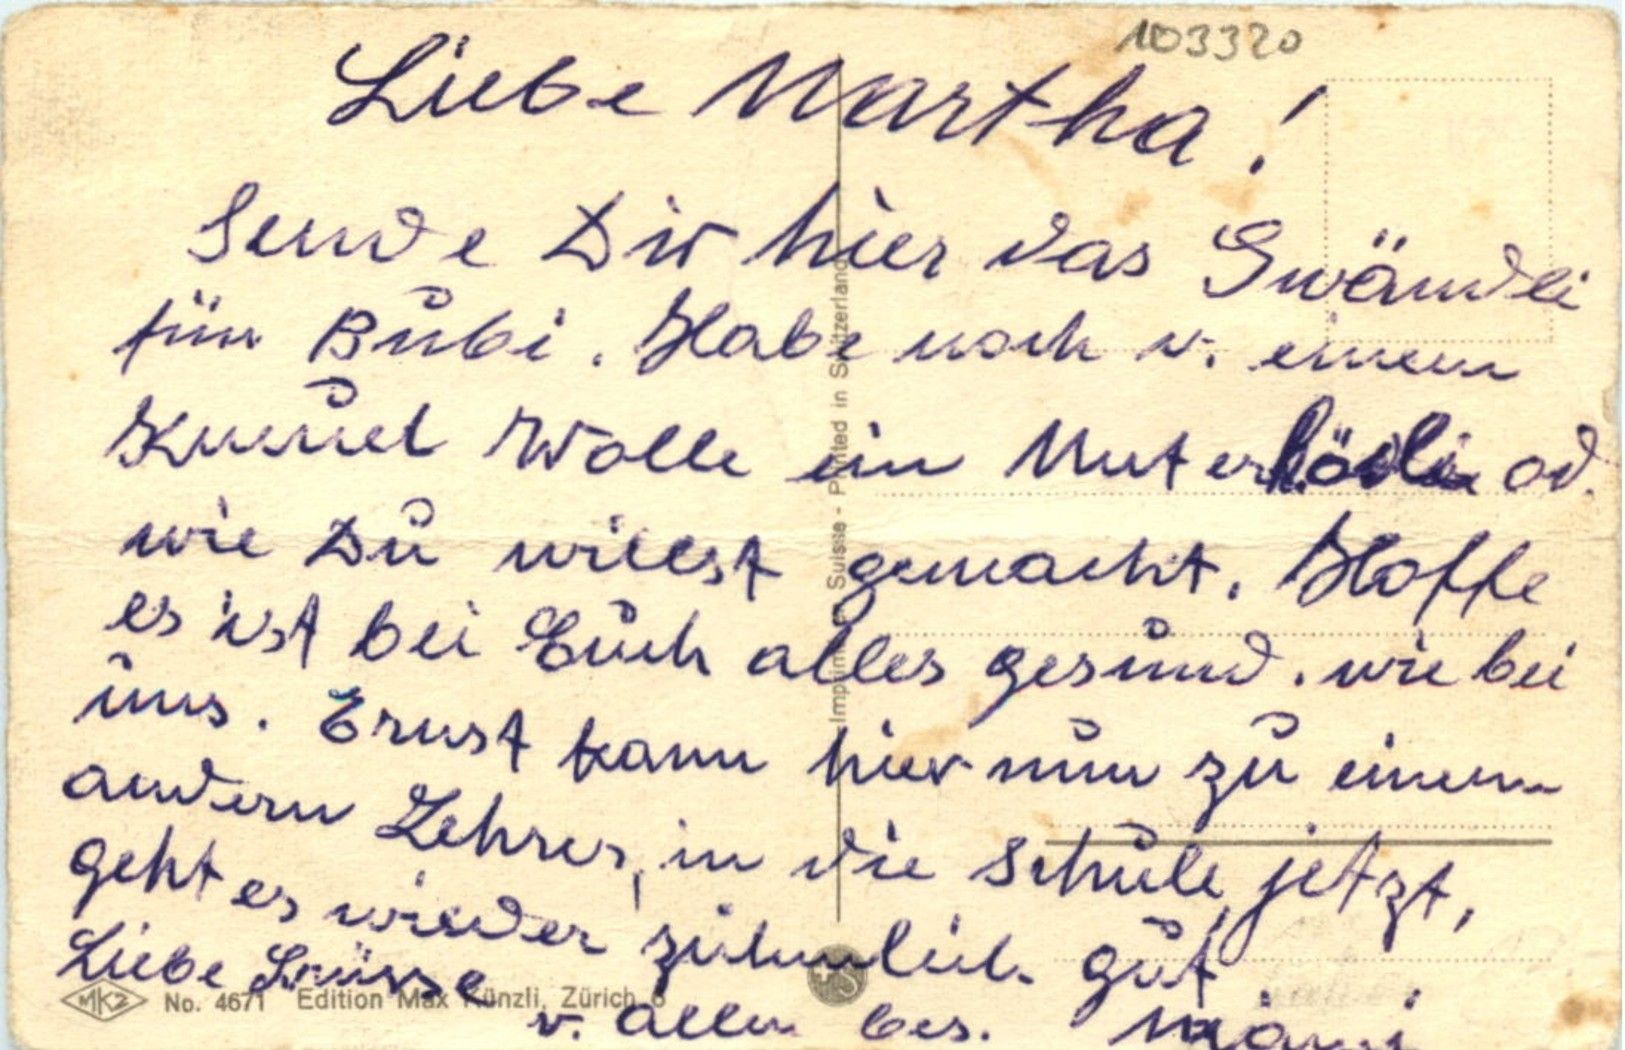 103320
Liebe Martha!
Sende Dir hier das Gwändli
für Bubi. Habe noch v. einem
Knäuel Wolle ein Unterhösli od.
wie Du willst gemacht. Hoffe
es ist bei Euch alles gesund. wie bei
uns. Ernst kann hier nun zu einem
andern Lehrer, in die Schule, jetzt,
geht es wieder zimlich gut
Liebe Grüsse
v. allen bes.
Imprimé Suisse - Printed in Switzerland
MKZ No. 4671 Edition Max Künzli, Zürich 6